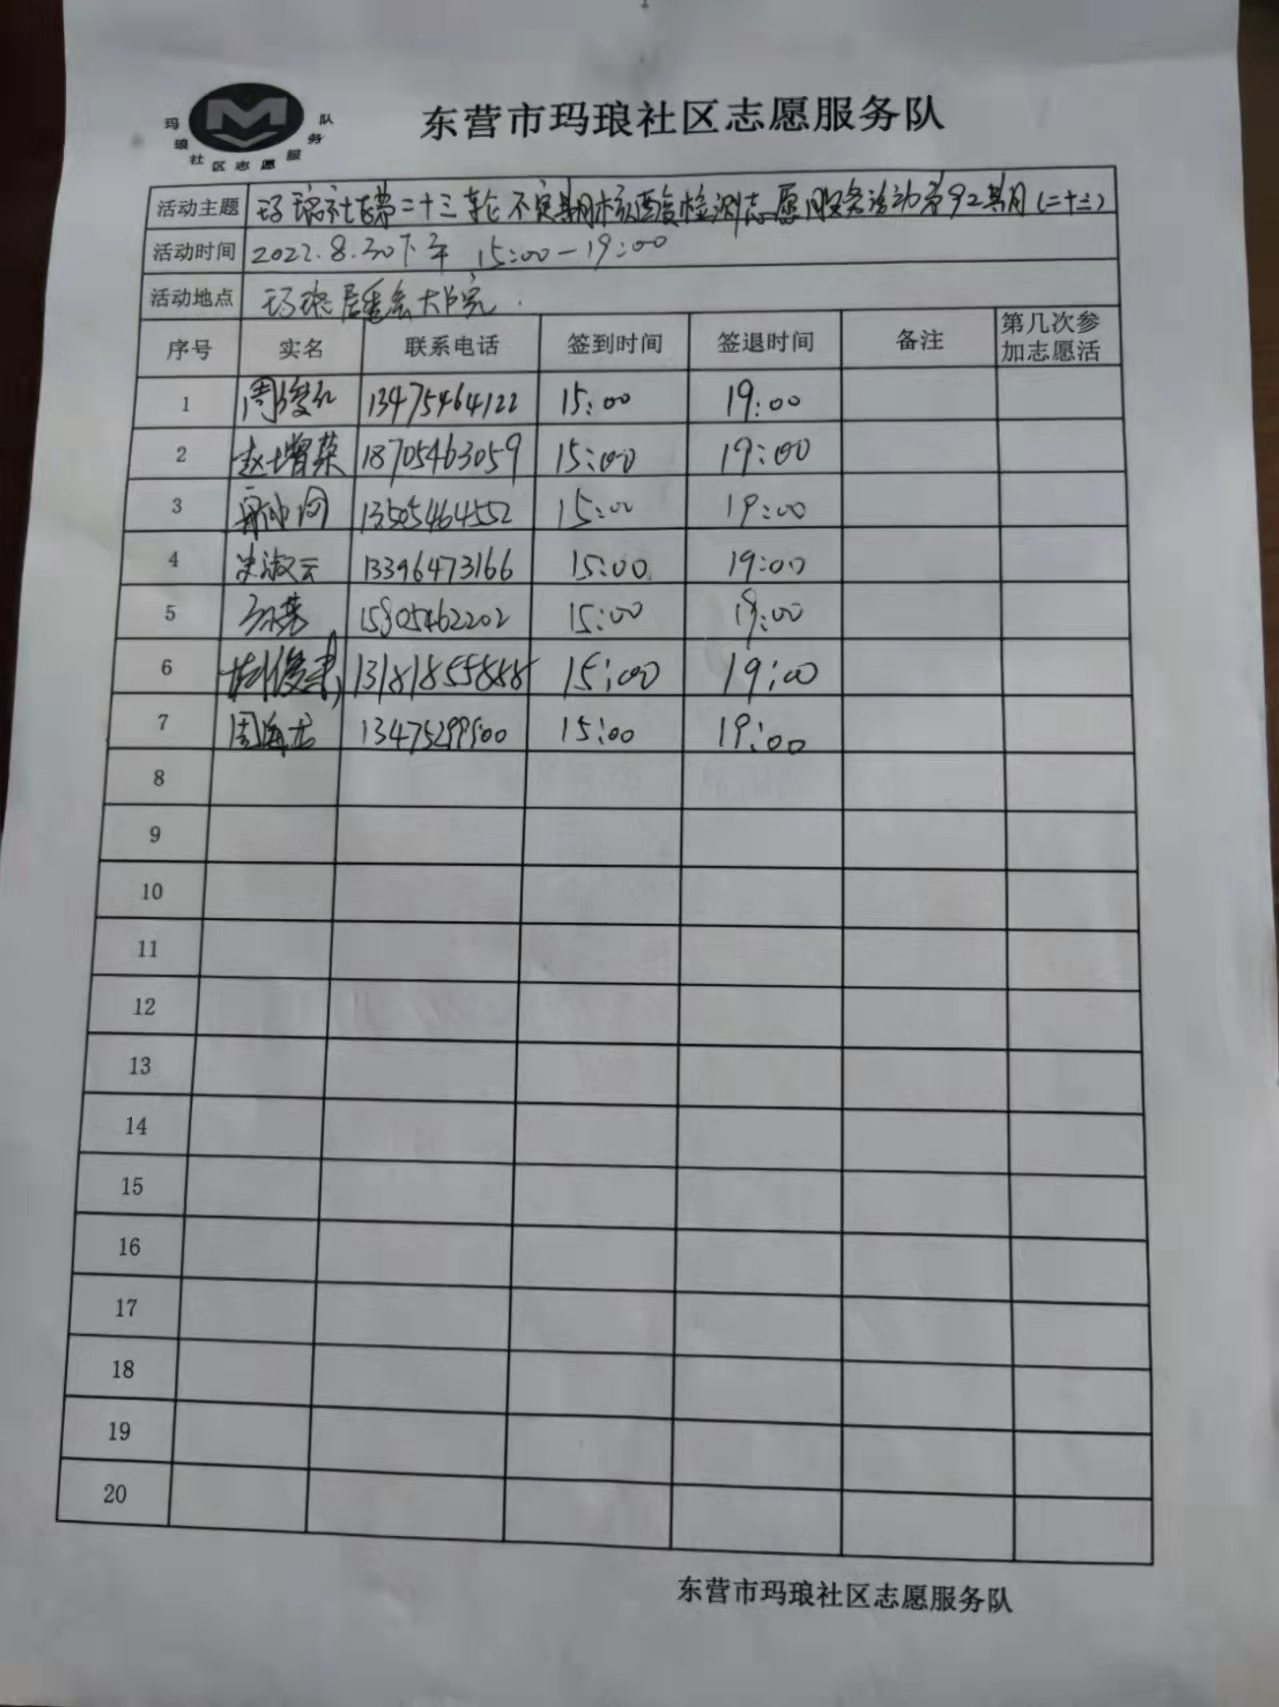 玛琅社区志愿服务队
东营市玛琅社区志愿服务队
活动主题 玛琅社区第二十三轮不定期核酸检测志愿服务活动第92期(二十三)
活动时间 2022.8.30下午 15:00-19:00
活动地点 玛琅居委会大院.
序号 实名 联系电话 签到时间 签退时间 备注 第几次参加志愿活
1 周俊红 13475464122 15:00 19:00
2 赵增荣 18705463059 15:00 19:00
3 13505464552 15:00 19:00
4 史淑云 13396473166 15:00 19:00
5 15905462202 15:00 19:00
6 13181855888 15:00 19:00
7 周海 13475299500 15:00 19:00
8
9
10
11
12
13
14
15
16
17
18
19
20
东营市玛琅社区志愿服务队